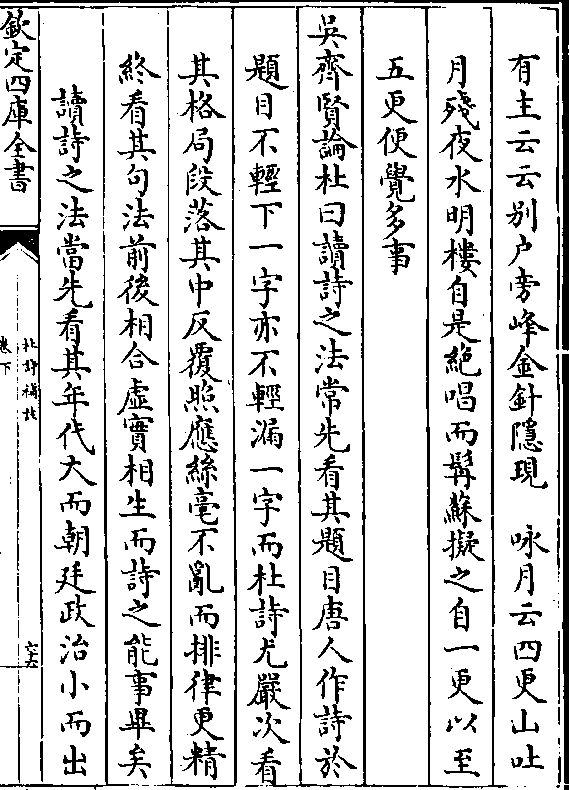 有主云云别户旁峰金針隱現　咏月云四更山吐
月殘夜水明樓自是絶唱而髯蘇擬之自一更以至
五更便覺多事
吳齊賢論杜曰讀詩之法常先看其題目唐人作詩於
題目不輕下一字亦不輕漏一字而杜詩尤嚴次看
其格局段落其中反覆照應絲毫不亂而排律更精
終看其句法前後相合虛實相生而詩之能事畢矣
讀詩之法當先看其年代大而朝廷政治小而出
欽定四庫全書
杜詩補註
卷下
六十六